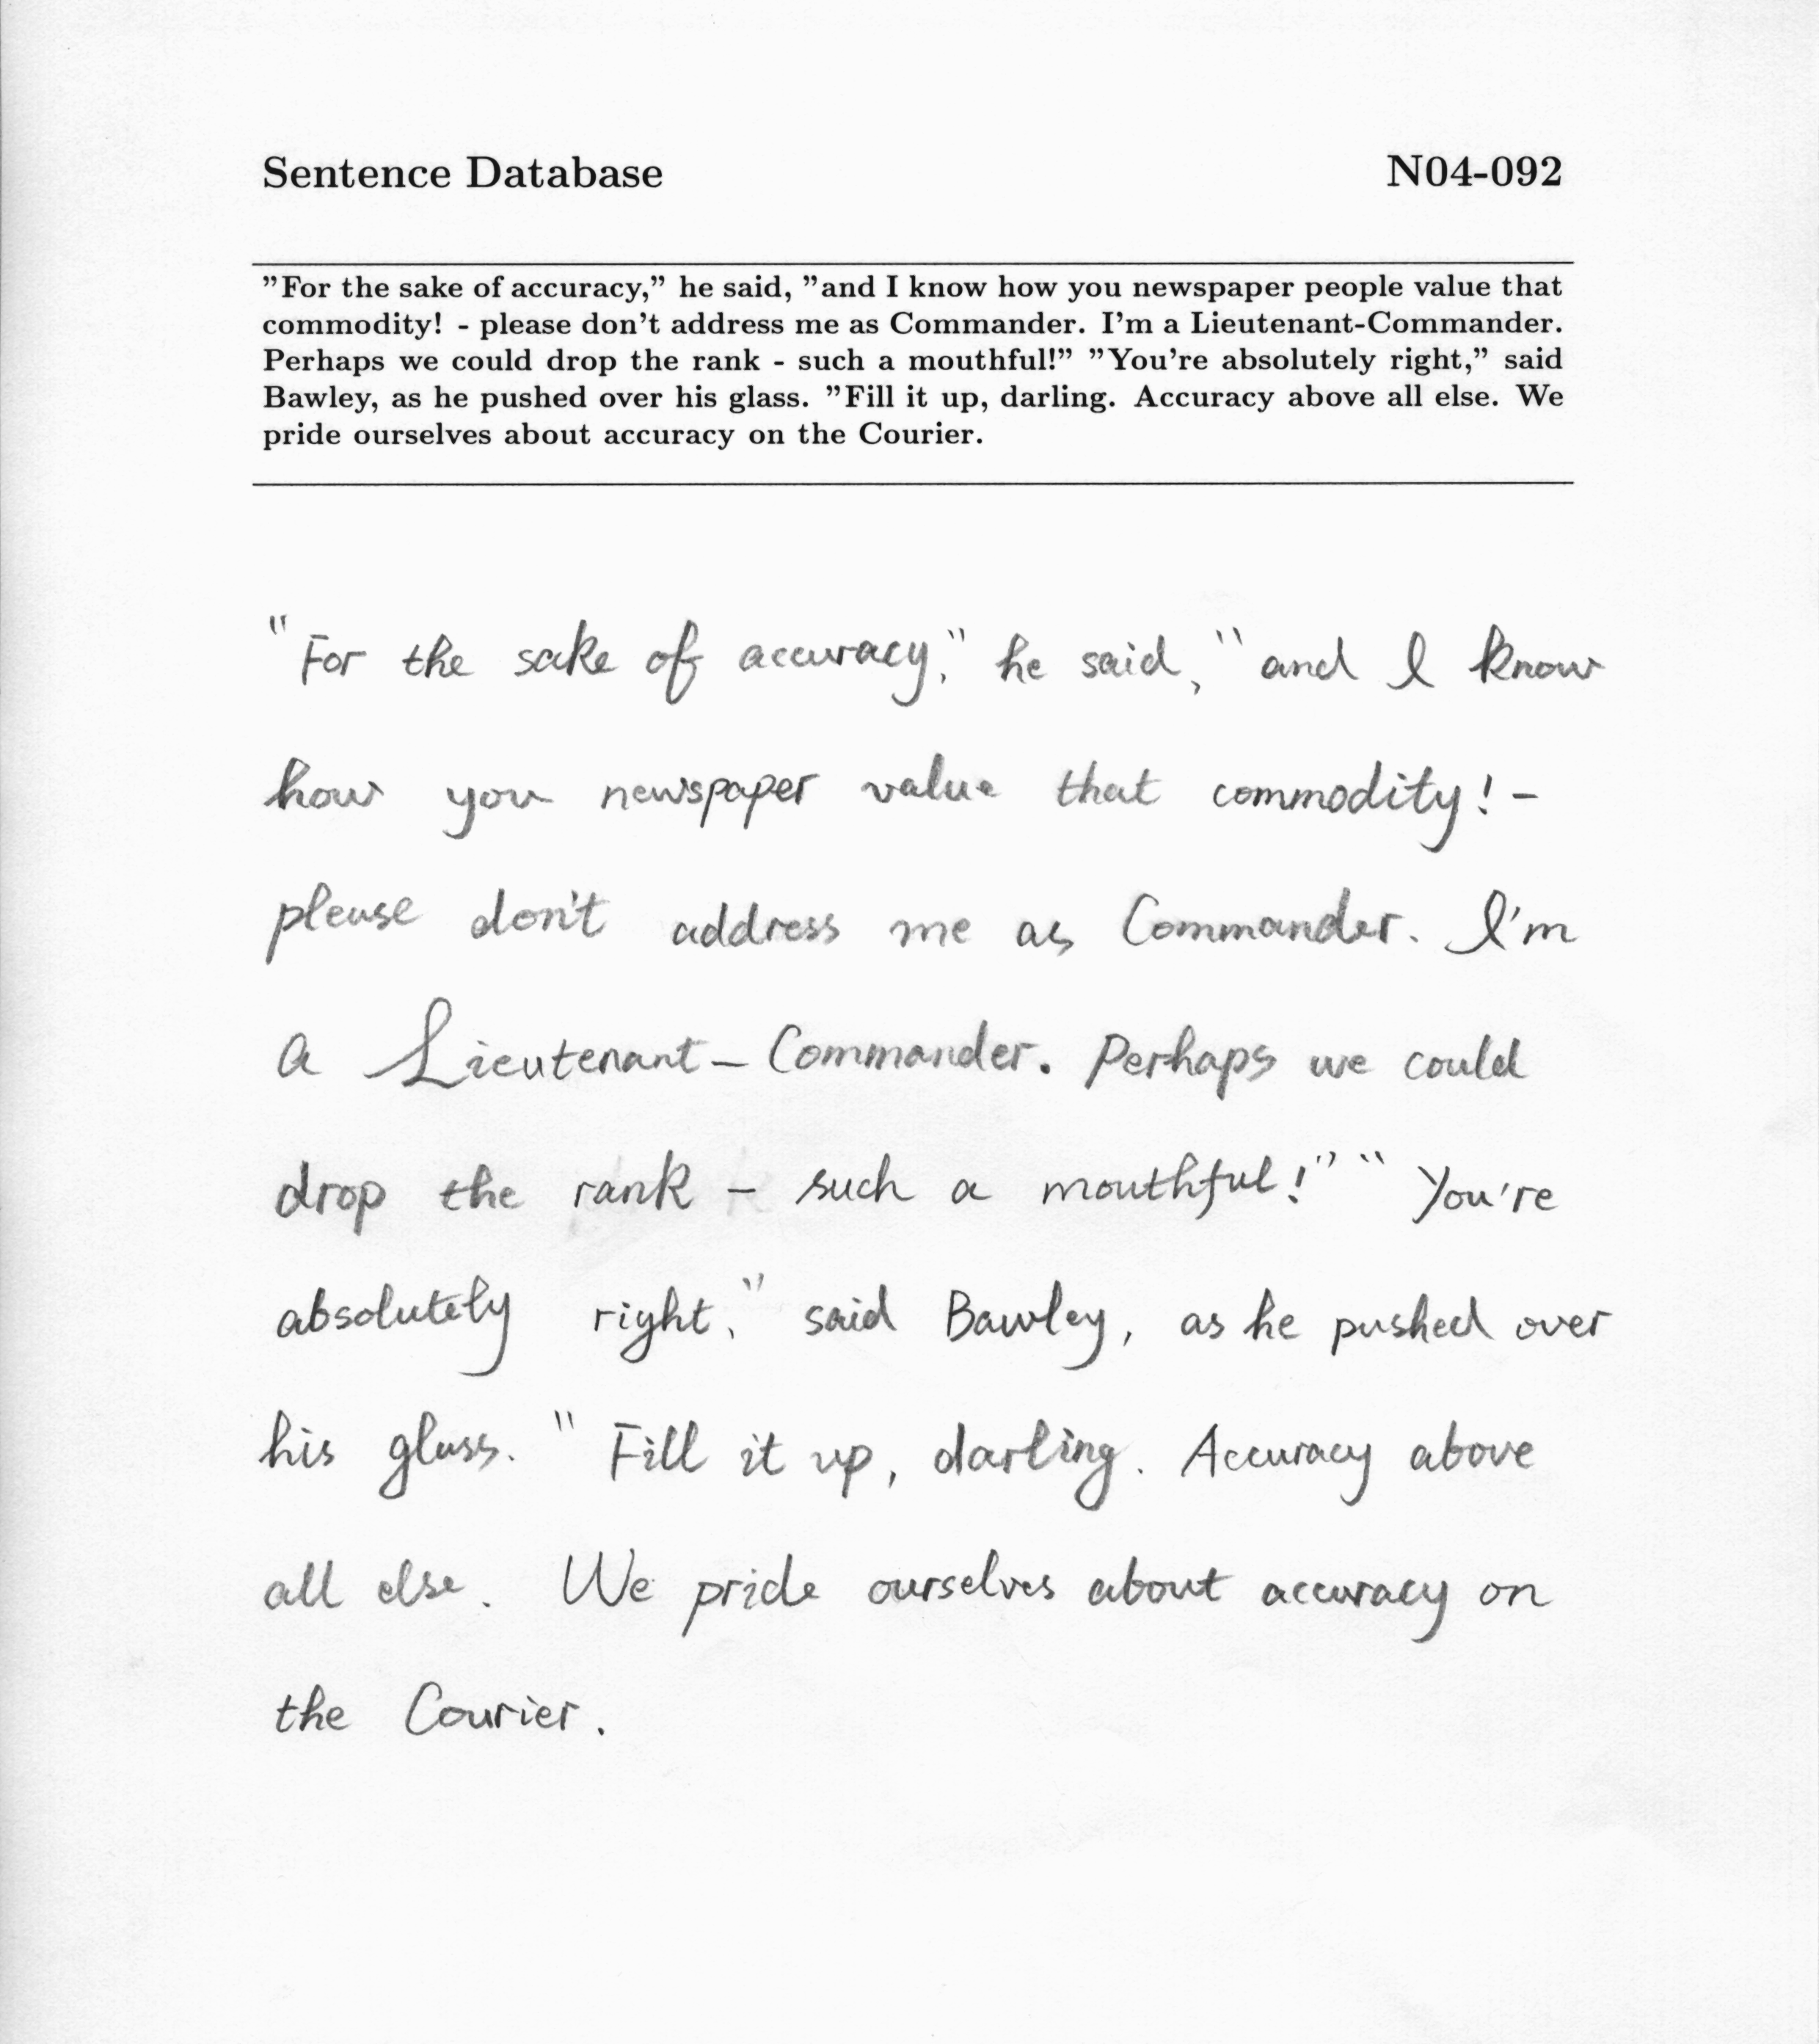 Sentence Database N04-092
"For the sake of accuracy," he said, "and I know how you newspaper people value that
commodity! - please don't address me as Commander. I'm a Lieutenant-Commander.
Perhaps we could drop the rank - such a mouthful!" "You're absolutely right," said
Bawley, as he pushed over his glass. "Fill it up, darling. Accuracy above all else. We
pride ourselves about accuracy on the Courier.
"For the sake of accuracy," he said, "and I know
how you newspaper value that commodity! -
please don't address me as Commander. I'm
a Lieutenant-Commander. Perhaps we could
drop the rank - such a mouthful!" "You're
absolutely right," said Bawley, as he pushed over
his glass. "Fill it up, darling. Accuracy above
all else. We pride ourselves about accuracy on
the Courier.